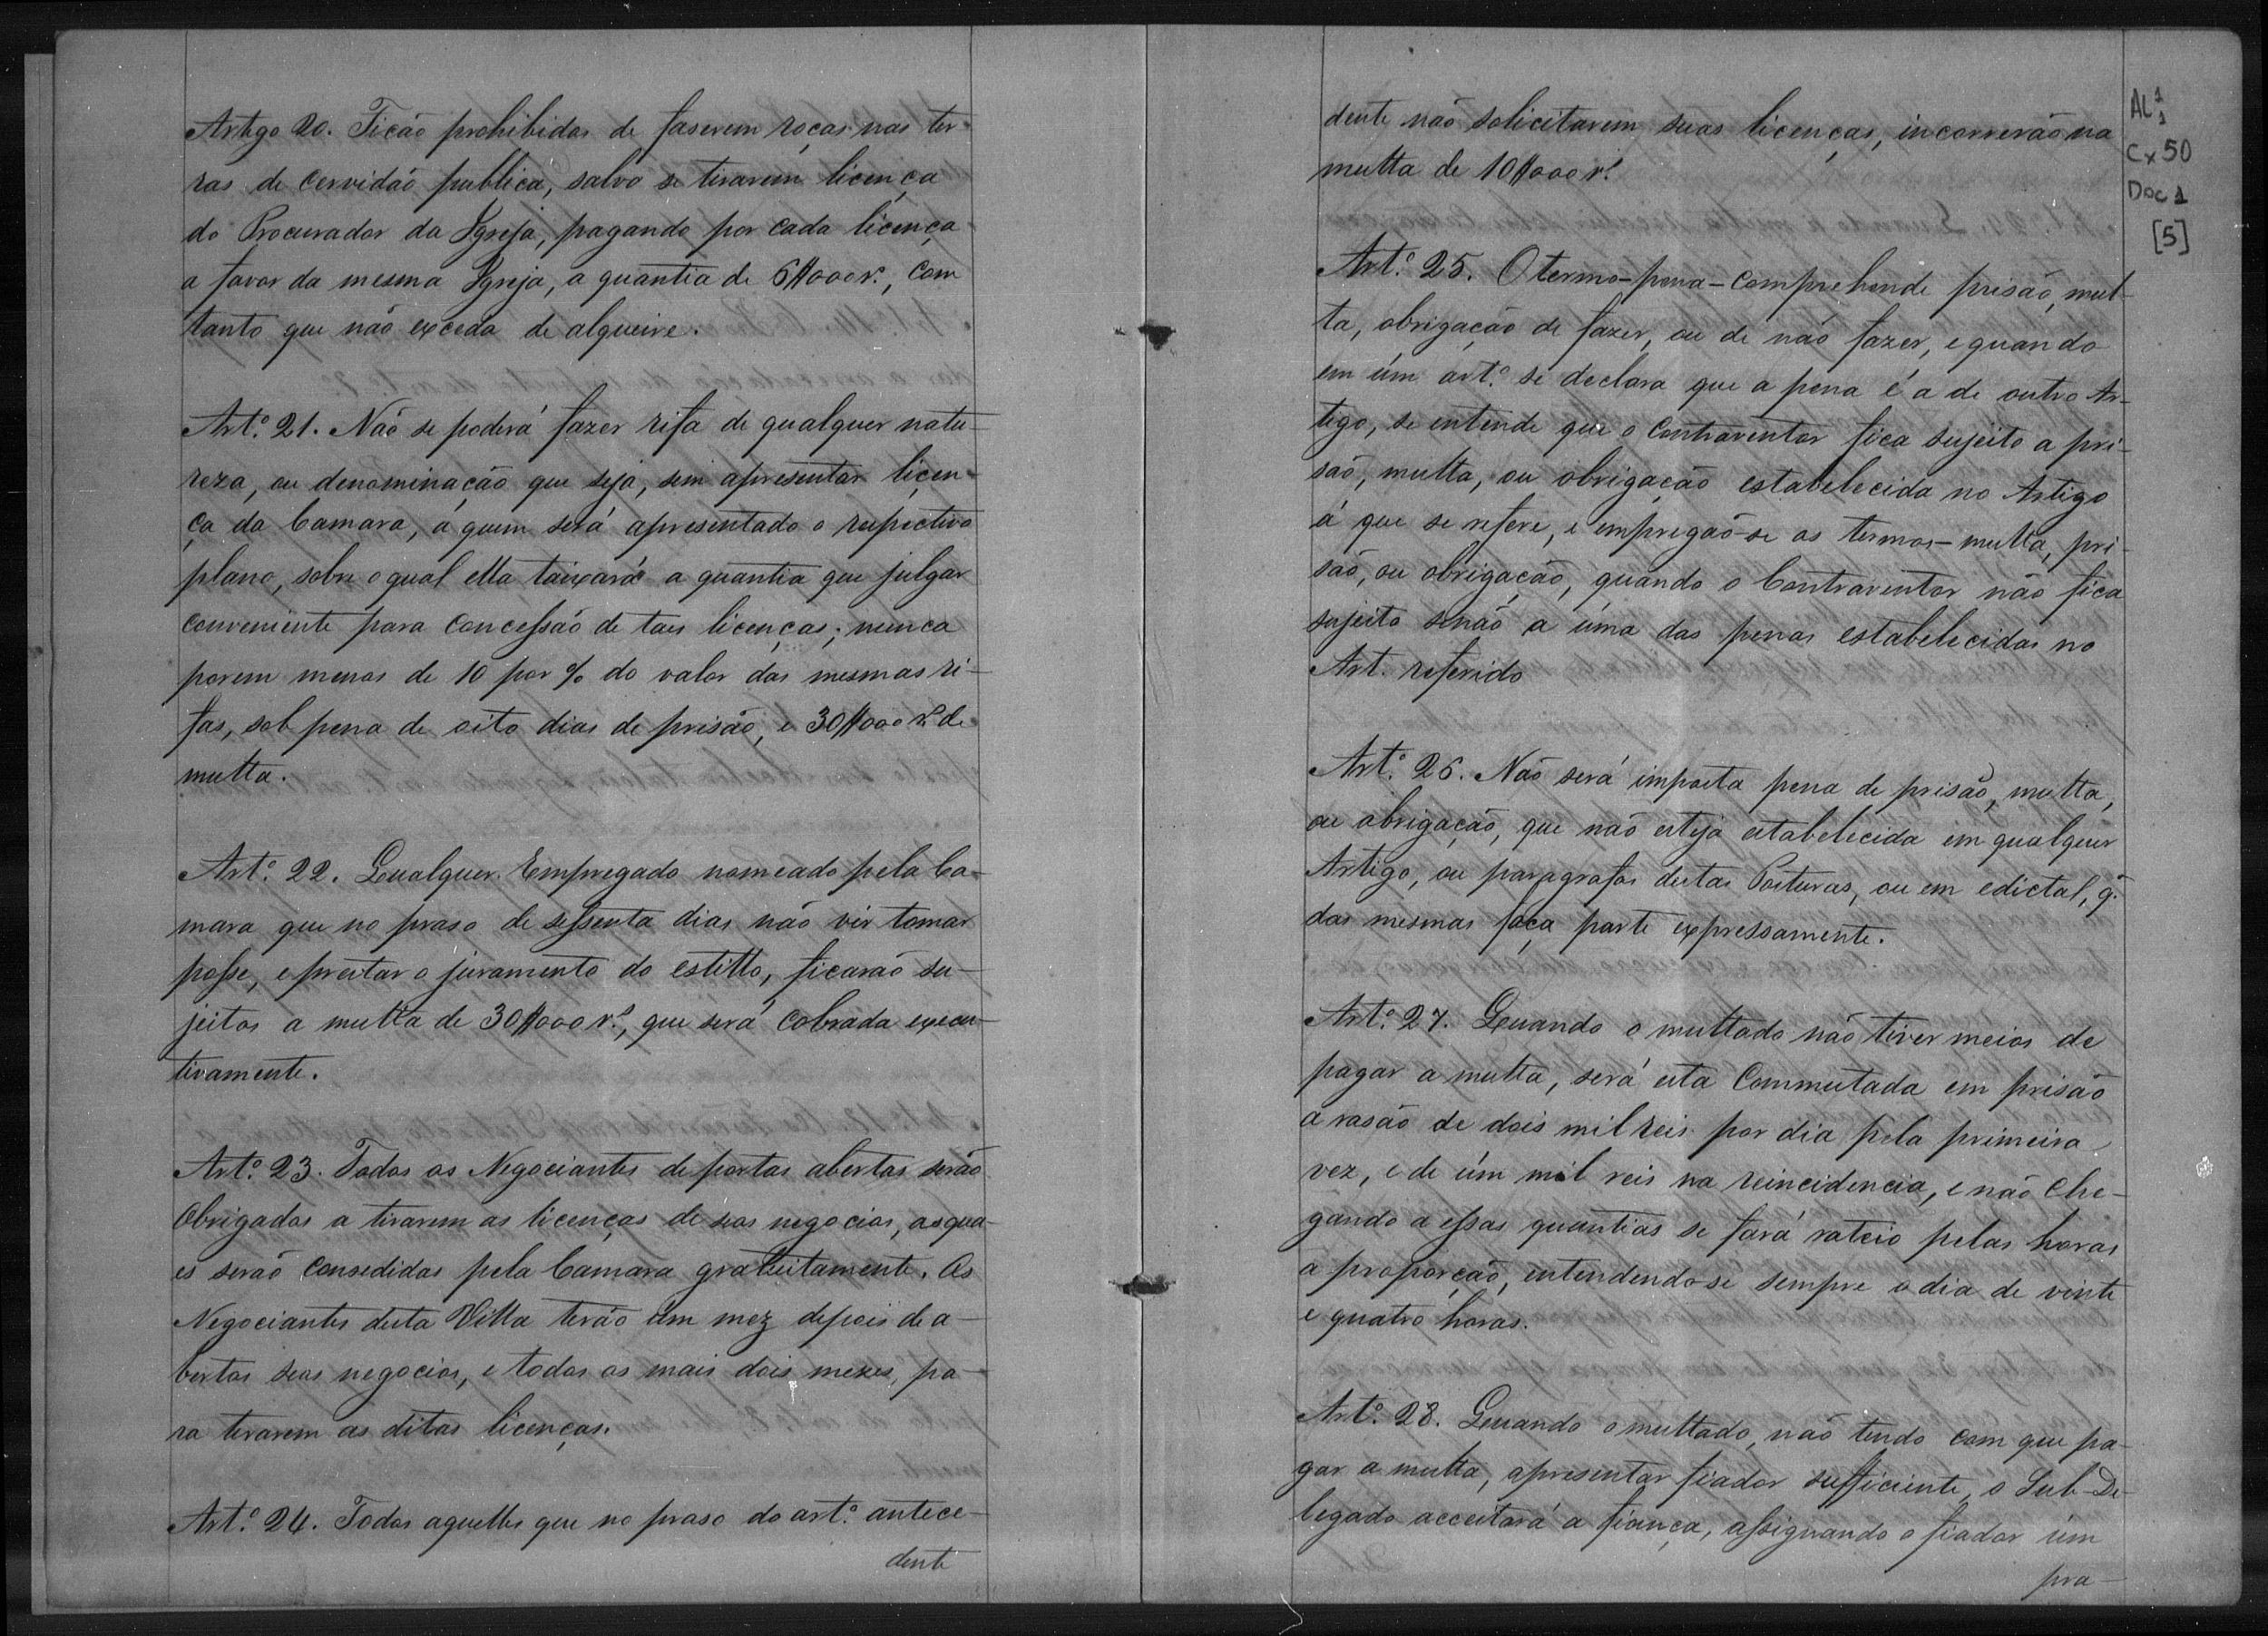 Artigo 20. Ficão prohibidos de faserem roças nas ter-
ras de cervidão publica, salvo se tirarem licença
do Procurador da Igreja, pagando por cada licença
a favor da mesma Igreja, a quantia de 6$000 rs., com
tanto que não exceda de alqueire.
Art.º 21. Não se poderá fazer rifa de qualquer natu-
reza, ou denominação que seja, sem apresentar licen-
ça da Camara, á quem será apresentado o respectivo
plano, sobre o qual ella taixará a quantia que julgar
conveniente para concessão de taes licenças; nunca
porem menos de 10 por % do valor das mesmas ri-
fas, sob pena de oito dias de prisão, e 30$000 rs. de
multa.
Art.º 22. Qualquer Empregado nomeado pela Ca-
mara que no praso de sessenta dias não vir tomar
posse, e prestar o juramento do estillo, ficarão su-
jeitos a multa de 30$000 rs., que será cobrada execu-
tivamente.
Art.º 23. Todos os Negociantes de portas abertas serão
obrigados a tirarem as licenças de seos negocios, as qua-
es serão consedidas pela Camara gratuitamente. Os
Negociantes desta Villa terão úm mez depois de a-
bertos seos negocios, e todos os mais dois mezes, pa-
ra tirarem as ditas licenças.
Art.º 24. Todos aquelles que no praso do art.º antece-
dente
dente não solicitarem suas licenças, incorrerão na
multa de 10$000 rs.
Art.º 25. O termo-pena-comprehende prisão, mul-
ta, obrigação de fazer, ou de não fazer, e quando
em úm art.º se declara que a pena é a de outro Ar-
tigo, se entende que o contraventor fica sujeito a pri-
são, multa, ou obrigação estabelecida no Artigo
á que se refere, e empregão-se os termos-multa, pri-
são, ou obrigação, quando o Contraventor não fica
sujeito senão a úma das penas estabelecidas no
Art. referido
Art.º 26. Não será imposta pena de prisão, multa,
ou obrigação, que não esteja estabelecida em qualquer
Artigo, ou paragrafos destas Posturas, ou em edictal, q.
das mesmas faça parte expressamente.
Art.º 27. Quando o multado não tiver meios de
pagar a multa, será esta Commutada em prisão
a rasão de dois mil reis por dia pela primeira
vez, e de úm mil reis na reincidencia, e não che-
gando a essas quantias se fará rateio pelas horas
a proporção, entendendo-se sempre o dia de vinte
e quatro horas.
Art.º 28. Quando o multado, não tendo com que pa-
gar a multa, apresentar fiador sufficiente, o Sub-De-
legado acceitará a fiança, assignando o fiador úm
pra-
AL 1
1
Cx 50
Doc 1
[5]